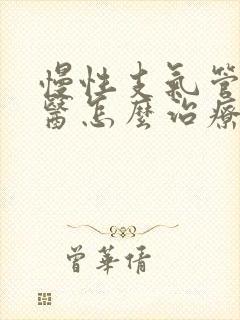 慢性支氣管
醫怎麼治療
曾華倩